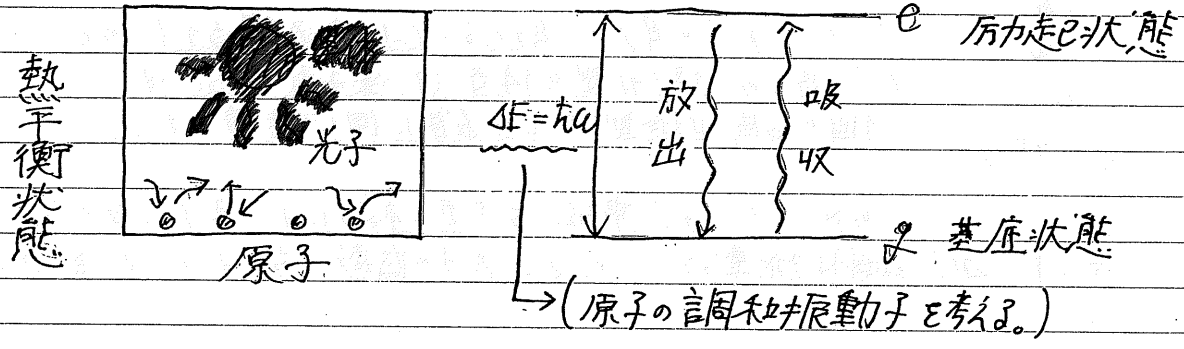 熱平衡状態
光子
原子
ΔE=ħω
放出
吸収
e 励起状態
g 基底状態
(原子の調和振動子を考える。)